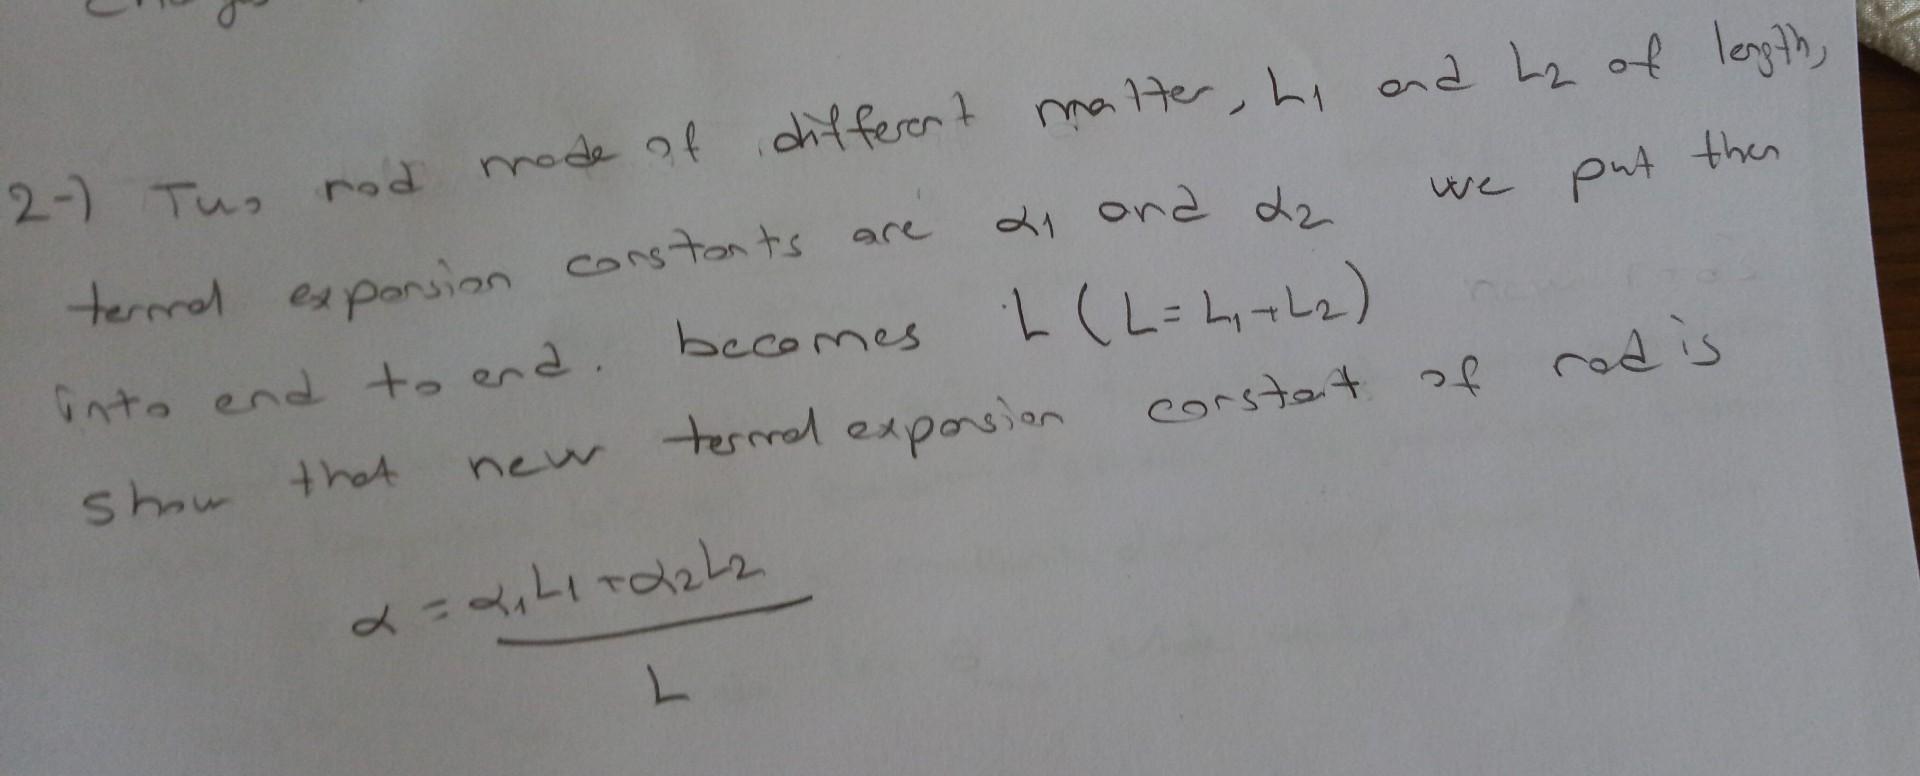 2-) Two rod made of different matter, L1 and L2 of length,
termal expansion constants are α1 and α2 we put then
into end to end. becomes L (L = L1 + L2)
show that new termal expansion constant of rod is
α = α1L1 + α2L2
L